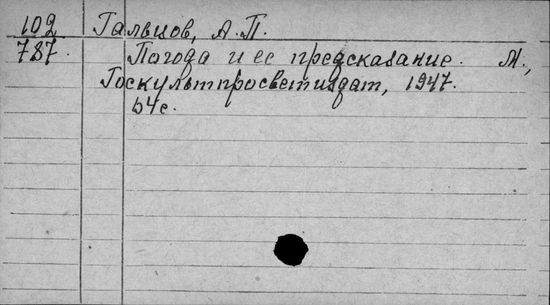 102 Гальцов, А.П.
787. Погода и ее предсказание. М.,
Госкультпросветиздат, 1947.
64с.